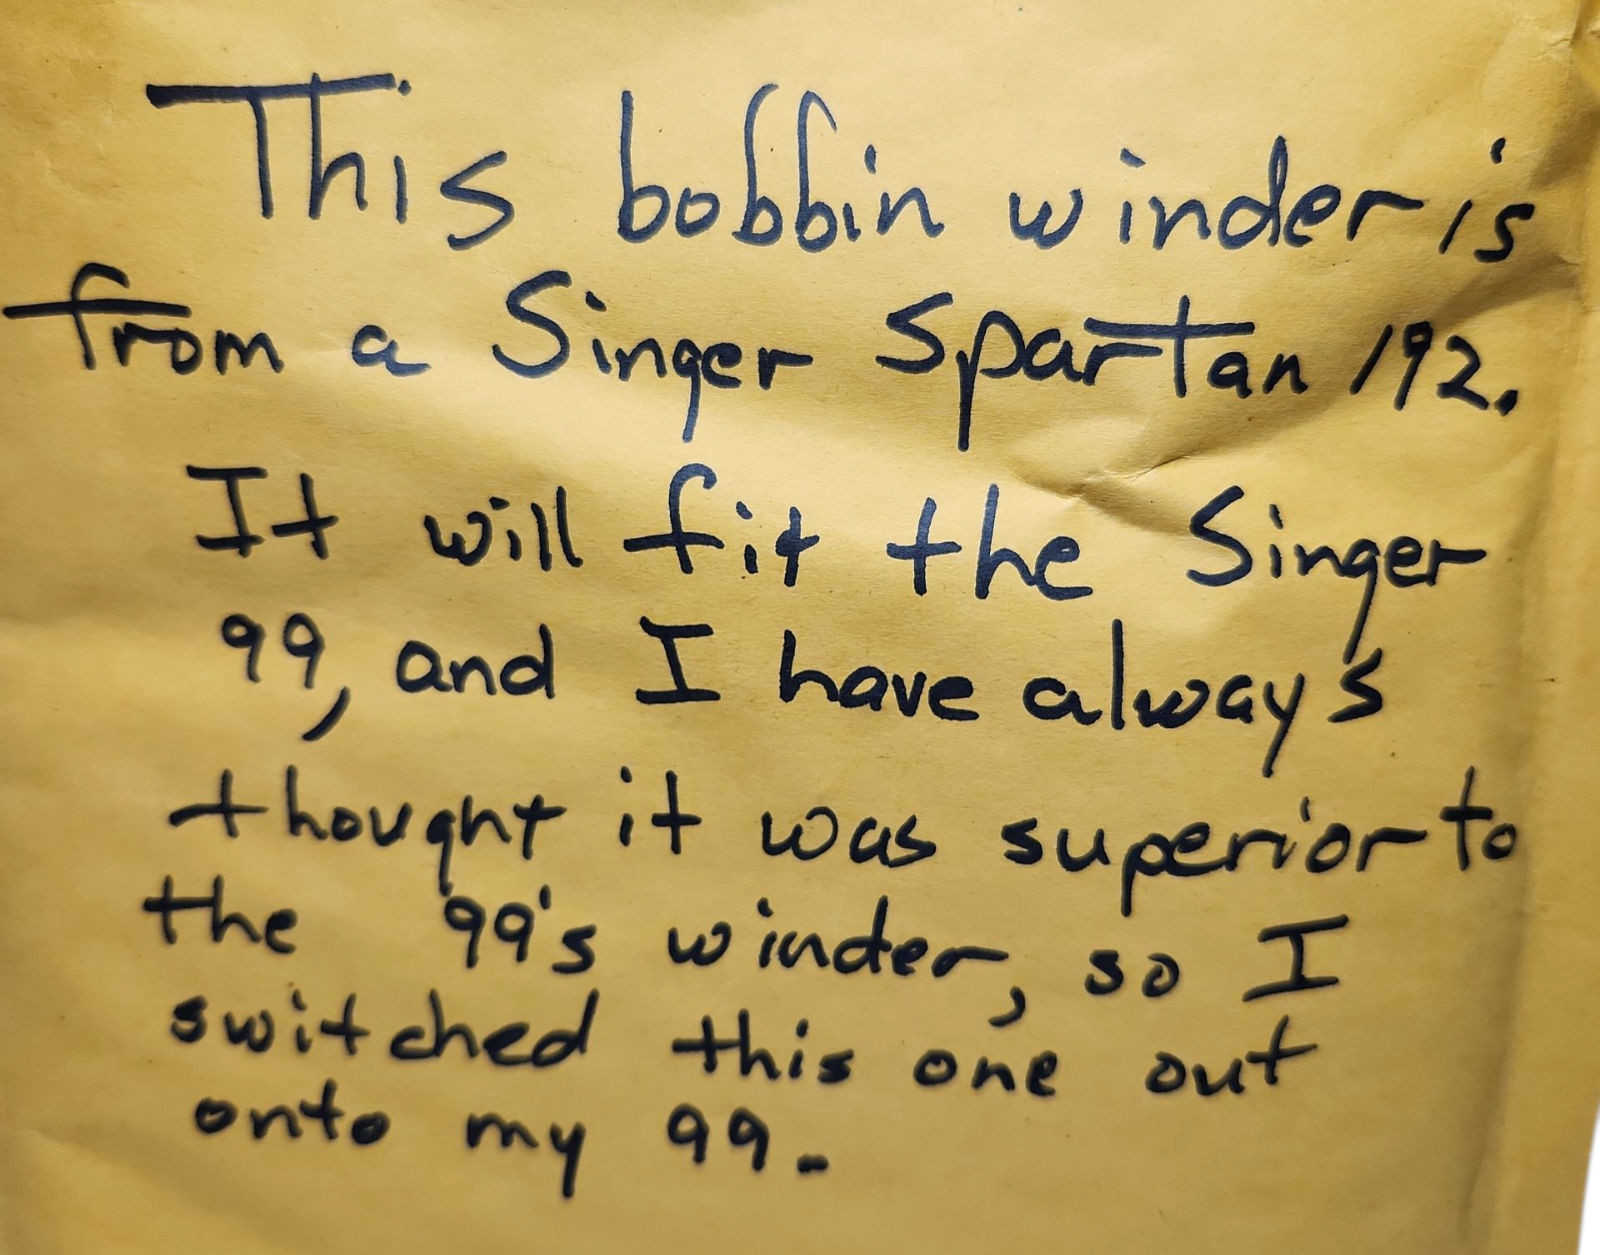 This bobbin winder is
from a Singer Spartan 192.
It will fit the Singer
99, and I have always
thought it was superior to
the 99's winder, so I
switched this one out
onto my 99.